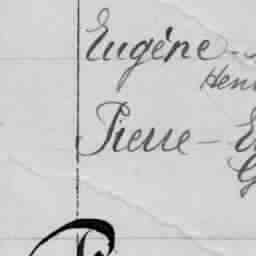 Eugène -
Hen
Pierre - E
G